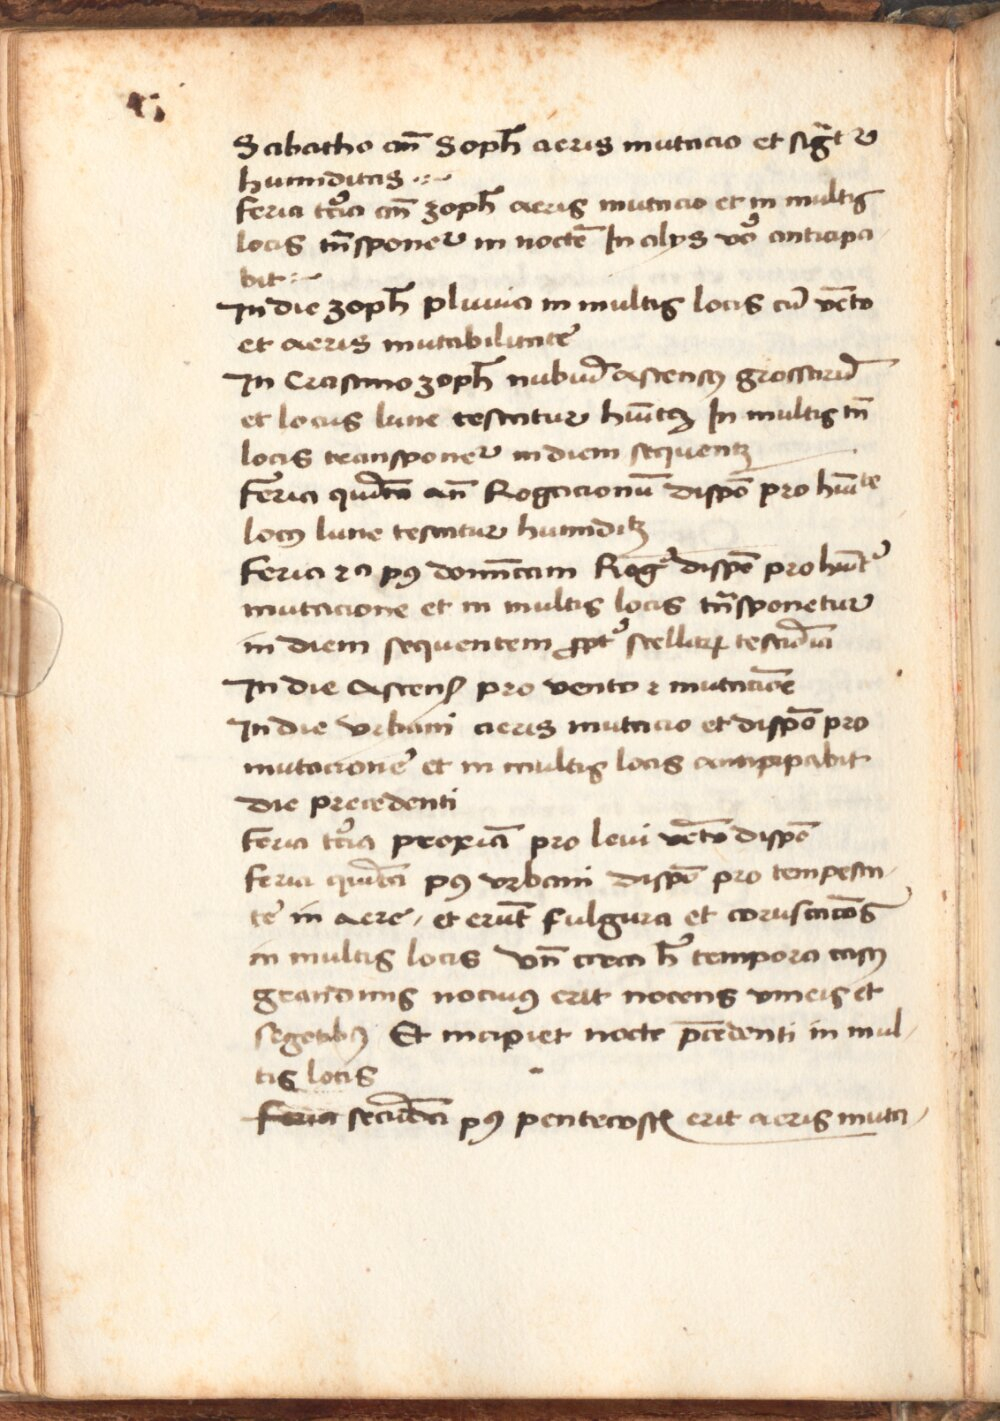 Sabatho an̄ Soph̄ aeris mutacio et sigt̄ r
humiditas
feria tcīa an̄ zoph̄ aeris mutacio et in multis
locis tn̄sponer in noctē In alys vō anticipa
bit
In die zoph̄ pluvia in multis locis cū vēto
et aeris mutabilitatē
In Crastino zoph̄ nubiū ascensus grossarū
et locus lune testatur hūtz In multis tn̄
locis transponer in diem sequentz
Feria quīta an̄ Rogacionū dispō pro hūte
locus lune testatur humiditz
Feria 2a pus domīcam Rog dispō pro hūt
mutacione et in multis locis tn̄sponetur
in diem sequentem ppt stellarum testīōia
In die Ascens pro vento 2 mutaciōe
In die Urbani aeris mutacio et dispō pro
mutacionē et in multis locis anticipabit
die precedenti
feria tcīa proxīa pro levi vēto dispō
feria quīta pus urbani dispō pro tempesta
tē in aere et erūt fulgura et coruscacōes
in multis locis Un̄ circa h̄ tempora casus
grandinis nocivus erit nocens vineis et
segetibus Et incipiet nocte p̄cedenti in mul
tis locis
Feria secūda pus pentecosten erit aeris muta